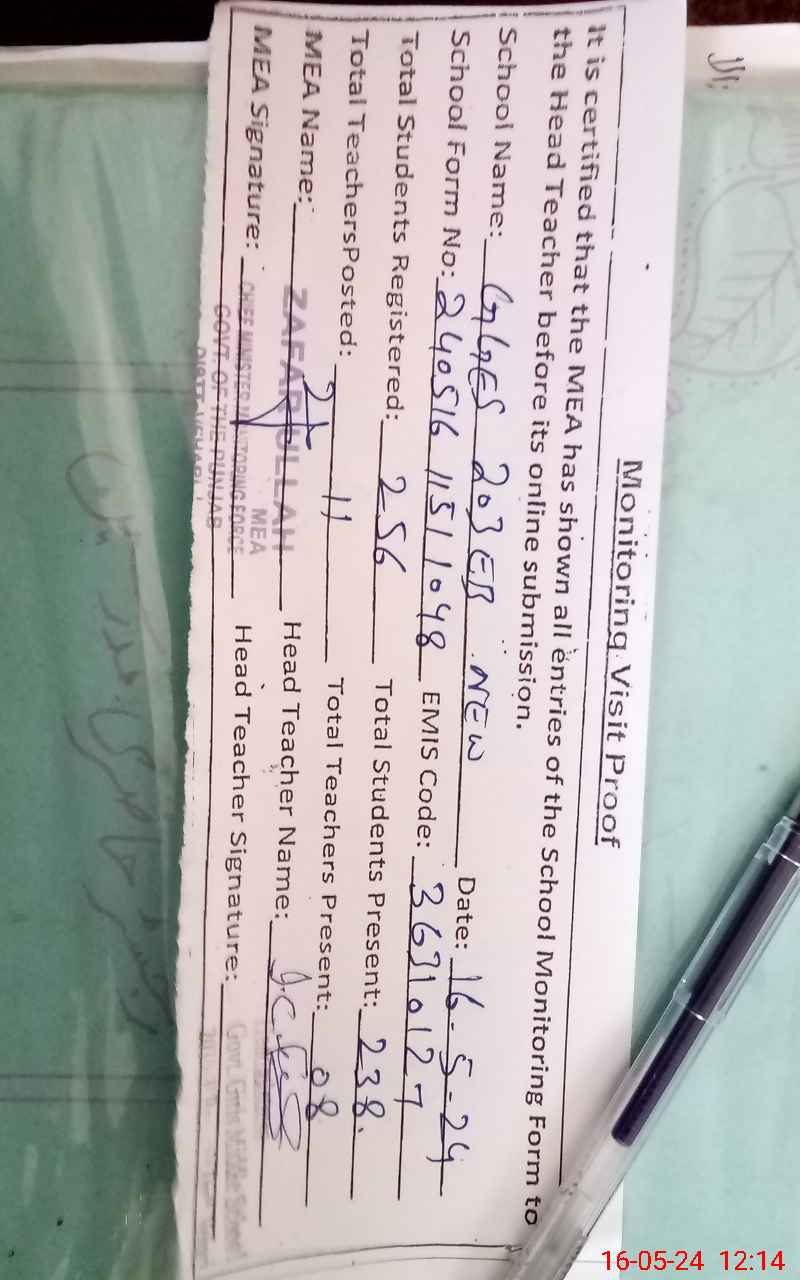 Monitoring Visit Proof
It is certified that the MEA has shown all entries of the School Monitoring Form to
the Head Teacher before its online submission.
School Name: GGES 203 EB NEW Date: 16-5-24
School Form No: 240516 1151 1048 EMIS Code: 36310127
Total Students Registered: 256 Total Students Present: 238.
Total TeachersPosted: 11 Total Teachers Present: 08
MEA Name: ZAFARULLAH Head Teacher Name:
MEA
MEA Signature: CHIEF MINISTER MONITORING FORCE Head Teacher Signature:
GOVT. OF THE PUNJAB
DISTT. VEHARI
Govt. Girls Middle School
16-05-24 12:14